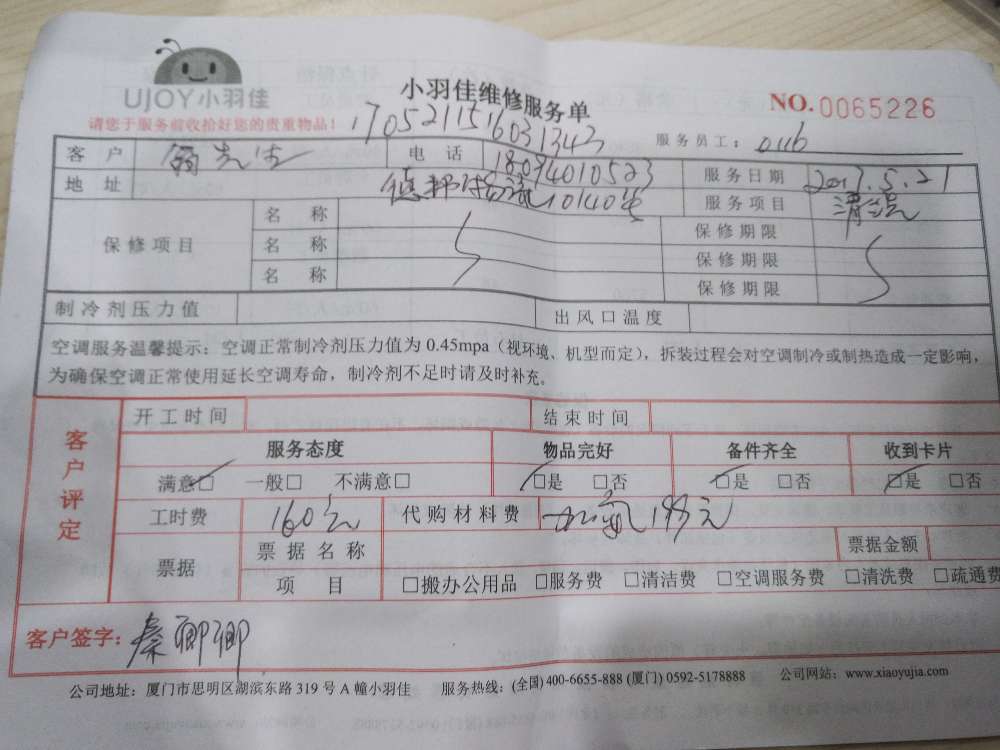 UJOY小羽佳
小羽佳维修服务单
NO.0065226
请您于服务前收拾好您的贵重物品!
1705211516031343
服务员工:
客户 先生 电话 18094010523 服务日期 2017.5.21
地址 1014 服务项目 清洗
保修项目 名称 保修期限
名称 保修期限
名称 保修期限
制冷剂压力值 出风口温度
空调服务温馨提示:空调正常制冷剂压力值为 0.45mpa(视环境、机型而定),拆装过程会对空调制冷或制热造成一定影响,
为确保空调正常使用延长空调寿命,制冷剂不足时请及时补充。
客户评定
开工时间 结束时间
服务态度 物品完好 备件齐全 收到卡片
满意□ 一般□ 不满意□ □是 □否 □是 □否 □是 □否
工时费 160元 代购材料费 加氟 元
票据 票据名称 票据金额
项目 □搬办公用品 □服务费 □清洁费 □空调服务费 □清洗费 □疏通费
客户签字:秦卿卿
公司地址:厦门市思明区湖滨东路 319 号 A 幢小羽佳 服务热线:(全国) 400-6655-888 (厦门) 0592-5178888 公司网站:www.xiaoyujia.com